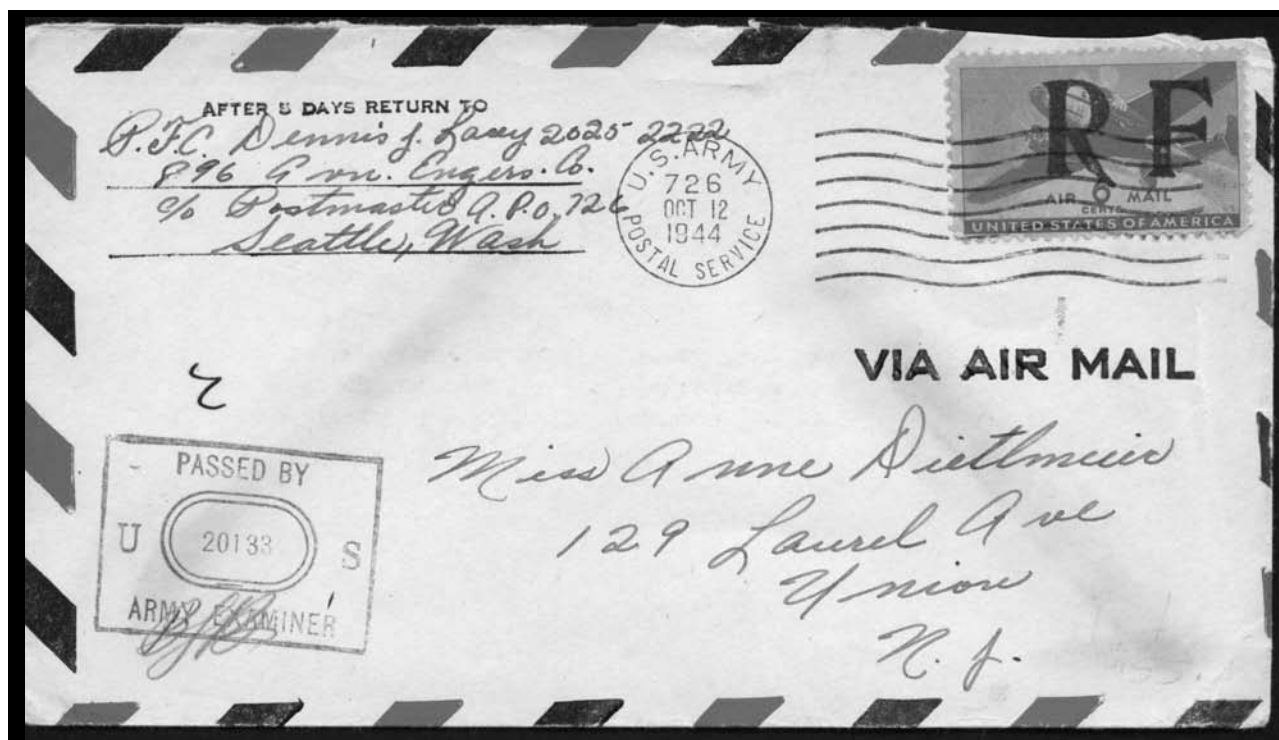 AFTER 5 DAYS RETURN TO
P.F.C. Dennis J. Lacey 2025 2222
896 Avn. Engers. Co.
c/o Postmaster A.P.O. 726
Seattle, Wash
U.S. ARMY
726
OCT 12
1944
POSTAL SERVICE
R F
AIR 6 MAIL
CENTS
UNITED STATES OF AMERICA
VIA AIR MAIL
PASSED BY
U 20133 S
ARMY EXAMINER
Miss Anne Dietlmeir
129 Laurel Ave
Union
N. J.